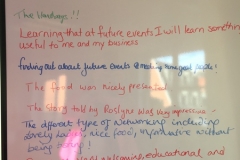 The Wordbags!!
Learning that at future events I will learn something
useful to me and my business
finding out about future events & meeting some great people!
The food was nicely presented
The Story told by Roslyn was very impressive -
The different type of Networking including
lovely food, nice food, informative without
being
educational and